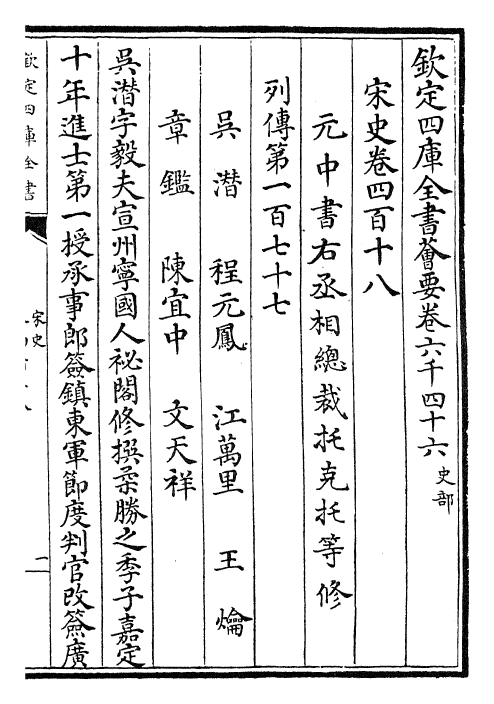 欽定四庫全書薈要卷六千四十六 史部
宋史卷四百十八
元中書右丞相總裁托克托等修
列傳第一百七十七
吳潛 程元鳳 江萬里 王爚
章鑑 陳宜中 文天祥
吳潛字毅夫宣州寧國人祕閣修撰柔勝之季子嘉定
十年進士第一授承事郎簽鎮東軍節度判官改簽廣
欽定四庫全書
宋史
一